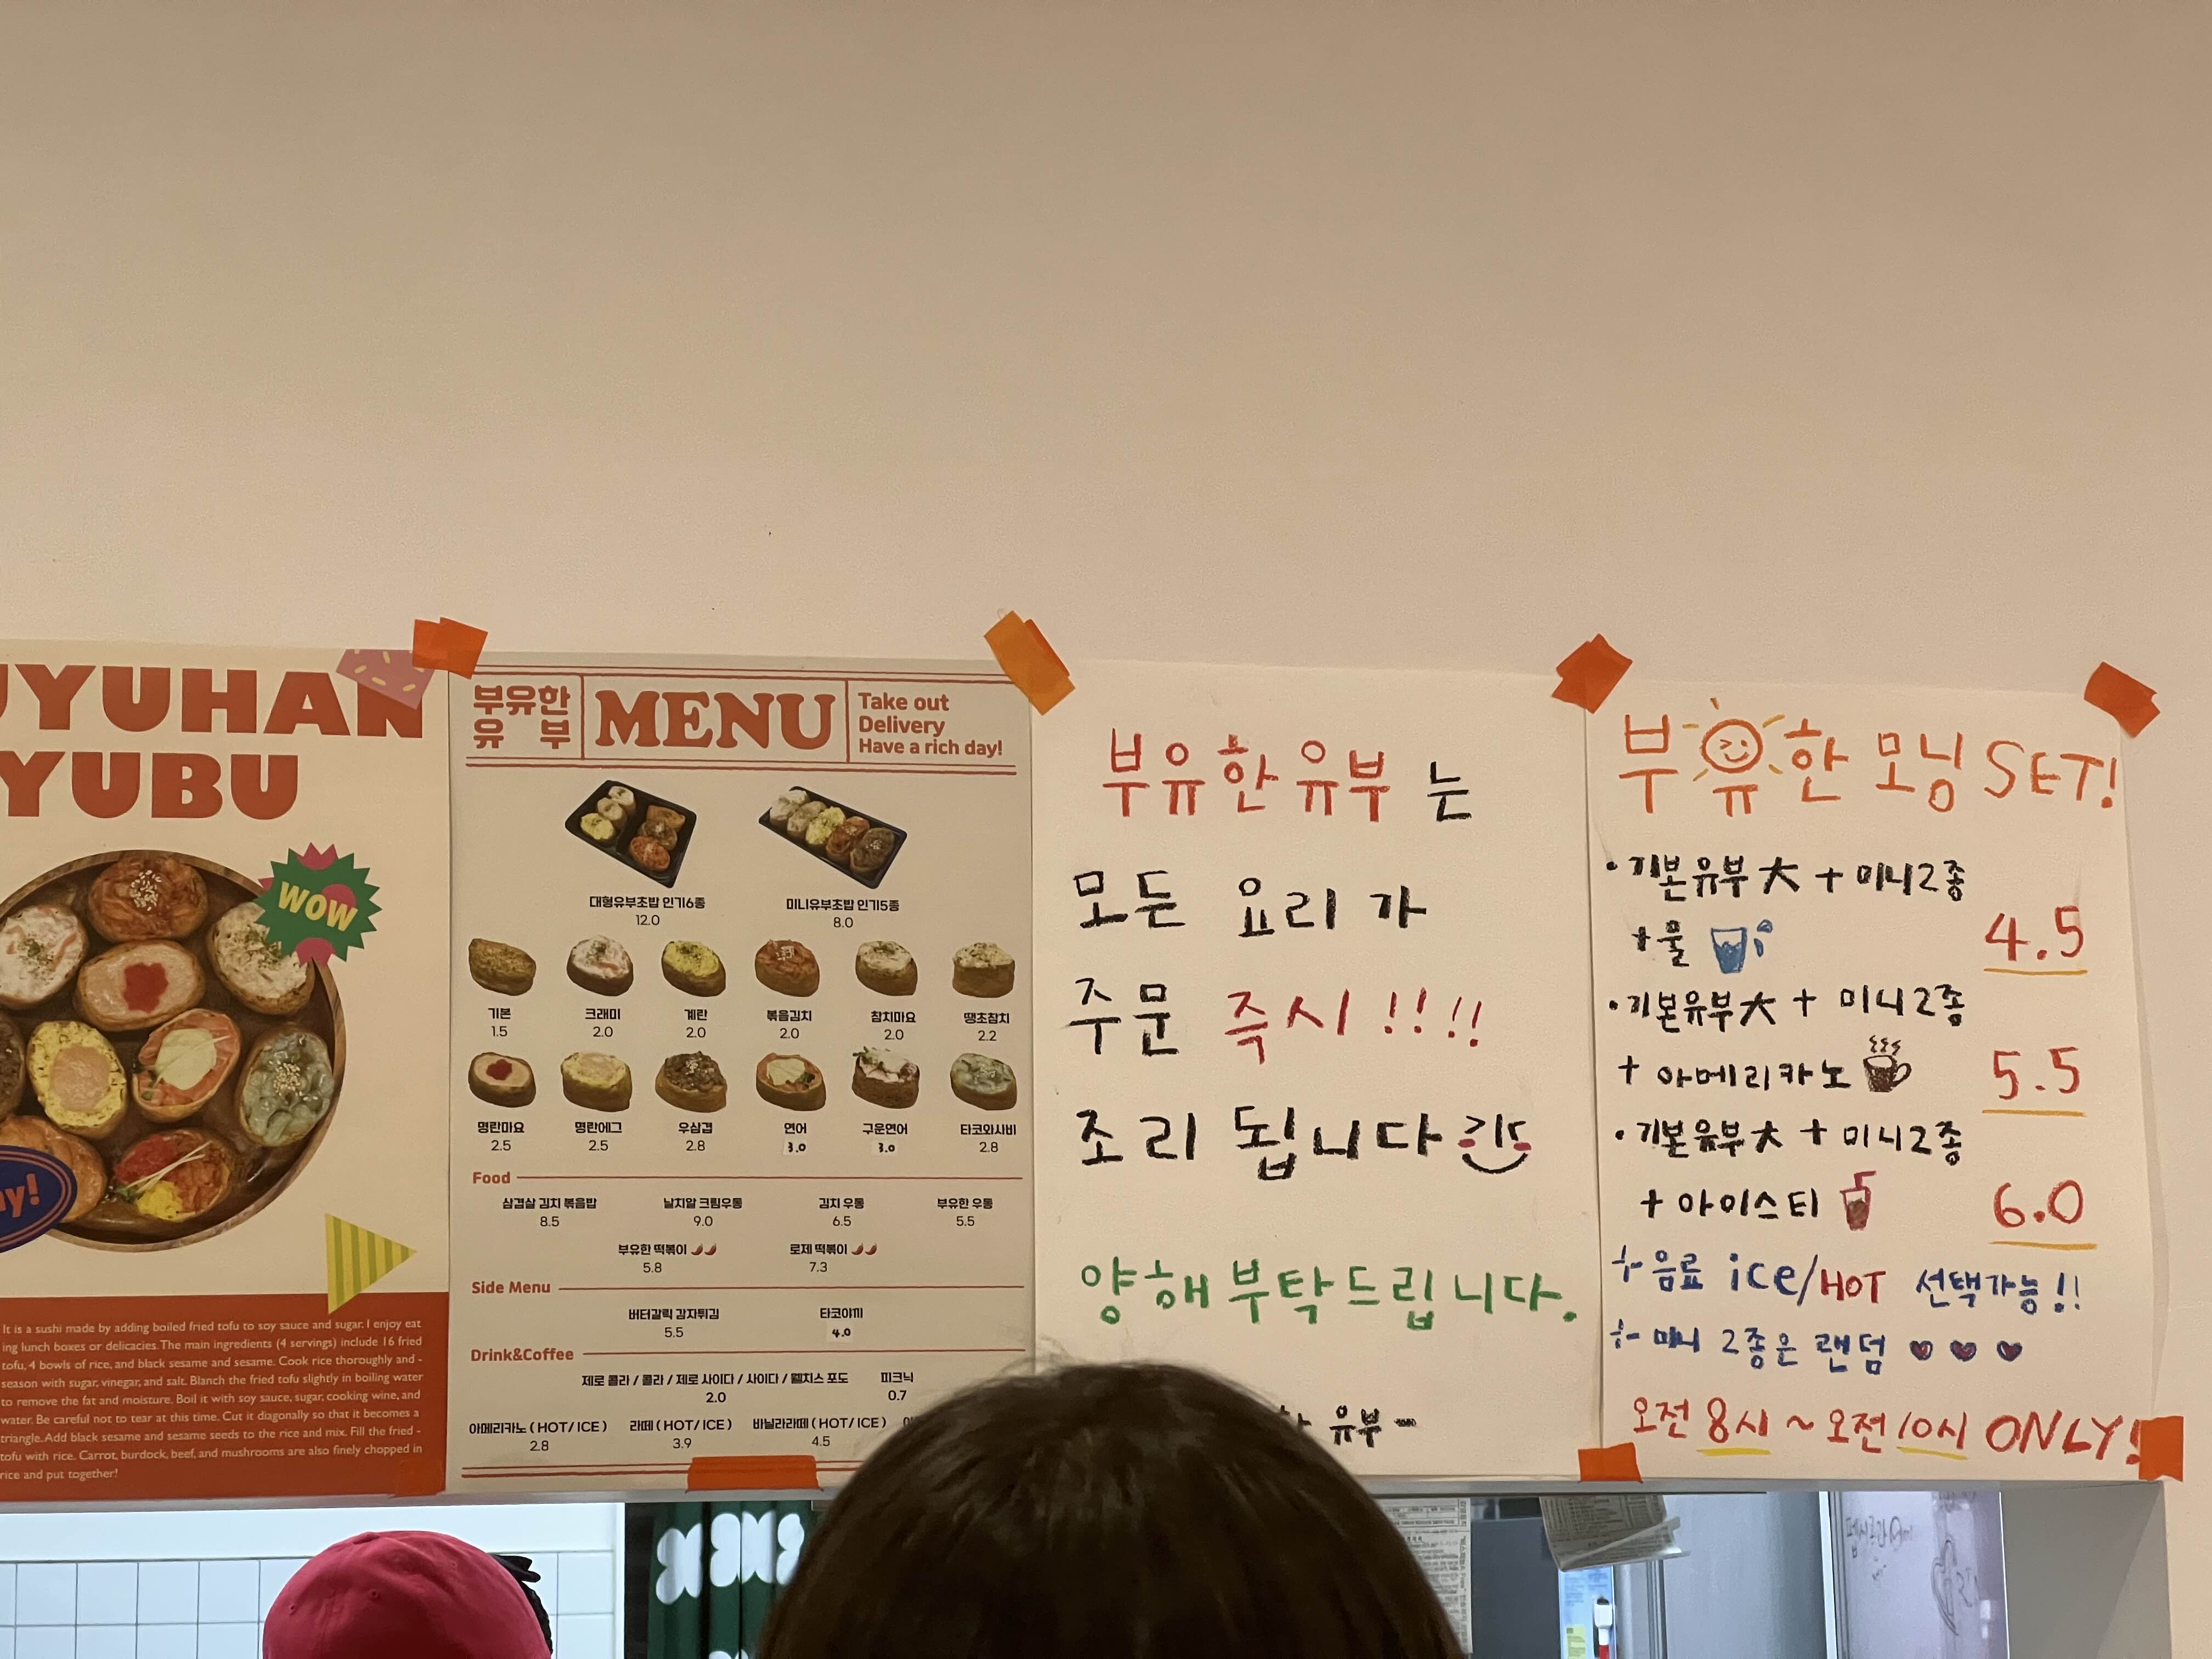 UYUHAN
YUBU
WOW
ay!
It is a sushi made by adding boiled fried tofu to soy sauce and sugar. I enjoy eat
ing lunch boxes or delicacies. The main ingredients (4 servings) include 16 fried
tofu, 4 bowls of rice, and black sesame and sesame. Cook rice thoroughly and -
season with sugar, vinegar, and salt. Blanch the fried tofu slightly in boiling water
to remove the fat and moisture. Boil it with soy sauce, sugar, cooking wine, and
water. Be careful not to tear at this time. Cut it diagonally so that it becomes a
triangle. Add black sesame and sesame seeds to the rice and mix. Fill the fried -
tofu with rice. Carrot, burdock, beef, and mushrooms are also finely chopped in
rice and put together!
부유한
유부
MENU
Take out
Delivery
Have a rich day!
대형유부초밥 인기6종 미니유부초밥 인기5종
12.0 8.0
기본 크래미 계란 볶음김치 참치마요 땡초참치
1.5 2.0 2.0 2.0 2.0 2.2
명란마요 명란에그 우삼겹 연어 구운연어 타코와사비
2.5 2.5 2.8 3.0 3.0 2.8
Food
삼겹살 김치 볶음밥 날치알 크림우동 김치 우동 부유한 우동
8.5 9.0 6.5 5.5
부유한 떡볶이 로제 떡볶이
5.8 7.3
Side Menu
버터갈릭 감자튀김 타코야끼
5.5 4.0
Drink&Coffee
제로 콜라 / 콜라 / 제로 사이다 / 사이다 / 웰치스 포도 피크닉
2.0 0.7
아메리카노 ( HOT/ ICE ) 라떼 ( HOT/ ICE ) 바닐라라떼 ( HOT/ ICE )
2.8 3.9 4.5
부유한유부 는
모든 요리 가
주문 즉시!!!!
조리 됩니다
양해부탁드립니다.
유부-
부유한 모닝 SET!
· 기본유부 大 + 미니2종
+물 4.5
· 기본유부大 + 미니2종
+ 아메리카노 5.5
· 기본유부大 + 미니2종
+ 아이스티 6.0
+ 음료 ice/HOT 선택가능!!
+ 미니 2종은 랜덤 ♥ ♥ ♥
오전 8시 ~ 오전 10시 ONLY!